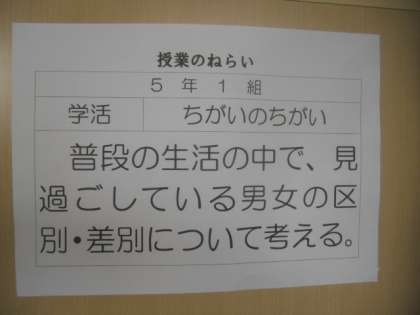 授業のねらい
5年1組
学活 ちがいのちがい
普段の生活の中で、見
過ごしている男女の区
別・差別について考える。